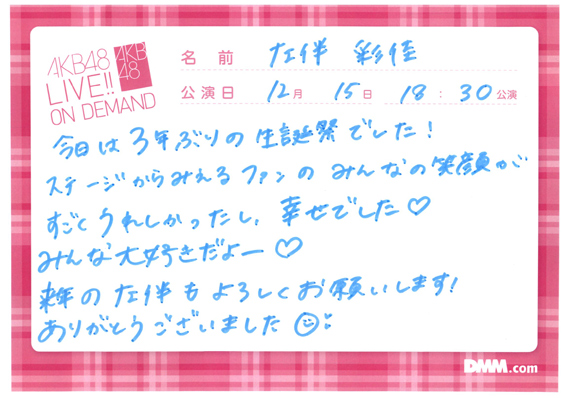 AKB48
LIVE!!
ON DEMAND
AKB
48
名前 左伴 彩佳
公演日 12月 15日 18:30公演
今日は3年ぶりの生誕祭でした!
ステージからみえるファンのみんなの笑顔が
すごくうれしかったし、幸せでした♡
みんな大好きだよー♡
来年の左伴もよろしくお願いします!
ありがとうございました☺
DMM.com